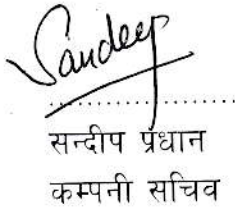 Sandeep
सन्दीप प्रधान
कम्पनी सचिव